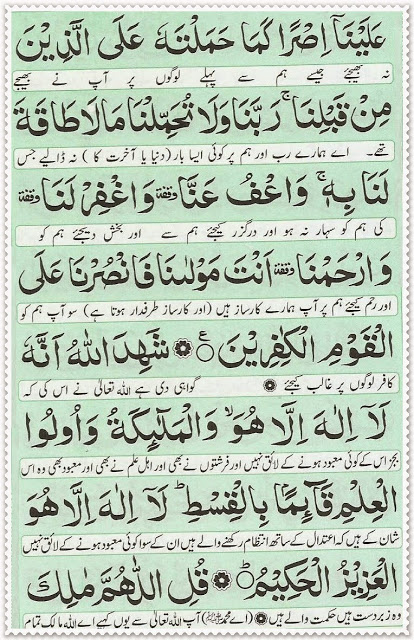 عَلَيْنَآ اِصْرًا كَمَا حَمَلْتَهٗ عَلَى الَّذِيْنَ
نہ بھیجئے جیسے ہم سے پہلے لوگوں پر آپ نے بھیجے
مِنْ قَبْلِنَا ۚ رَبَّنَا وَلَا تُحَمِّلْنَا مَا لَا طَاقَةَ
تھے۔ اے ہمارے رب اور ہم پر کوئی ایسا بار (دنیا یا آخرت کا ) نہ ڈالیے جس
لَنَا بِهٖ ۚ وَاعْفُ عَنَّا وقفة وَاغْفِرْ لَنَا وقفة
کی ہم کو سہار نہ ہو اور درگزر کیجئے ہم سے اور بخش دیجئے ہم کو
وَارْحَمْنَا وقفة اَنْتَ مَوْلٰىنَا فَانْصُرْنَا عَلَى
اور رحم کیجئے ہم پر آپ ہمارے کارساز ہیں (اور کارساز طرفدار ہوتا ہے) سو آپ ہم کو
الْقَوْمِ الْكٰفِرِيْنَ ۝ع شَهِدَ اللّٰهُ اَنَّهٗ
کافر لوگوں پر غالب کیجئے گواہی دی ہے اللہ تعالیٰ نے اس کی کہ
لَآ اِلٰهَ اِلَّا هُوَ ۙ وَالْمَلٰٓئِكَةُ وَاُولُوا
بجز اس کے کوئی معبود ہونے کے لائق نہیں اور فرشتوں نے بھی اور اہل علم نے بھی اور معبود بھی وہ اس
الْعِلْمِ قَآئِمًاۢ بِالْقِسْطِ ؕ لَآ اِلٰهَ اِلَّا هُوَ
شان کے ہیں کہ اعتدال کے ساتھ انتظام رکھنے والے ہیں ان کے سوا کوئی معبود ہونے کے لائق نہیں
الْعَزِيْزُ الْحَكِيْمُ ؕ قُلِ اللّٰهُمَّ مٰلِكَ
وہ زبردست ہیں حکمت والے ہیں (اے محمد ﷺ) آپ اللہ تعالیٰ سے یوں کہیے اے اللہ مالک تمام